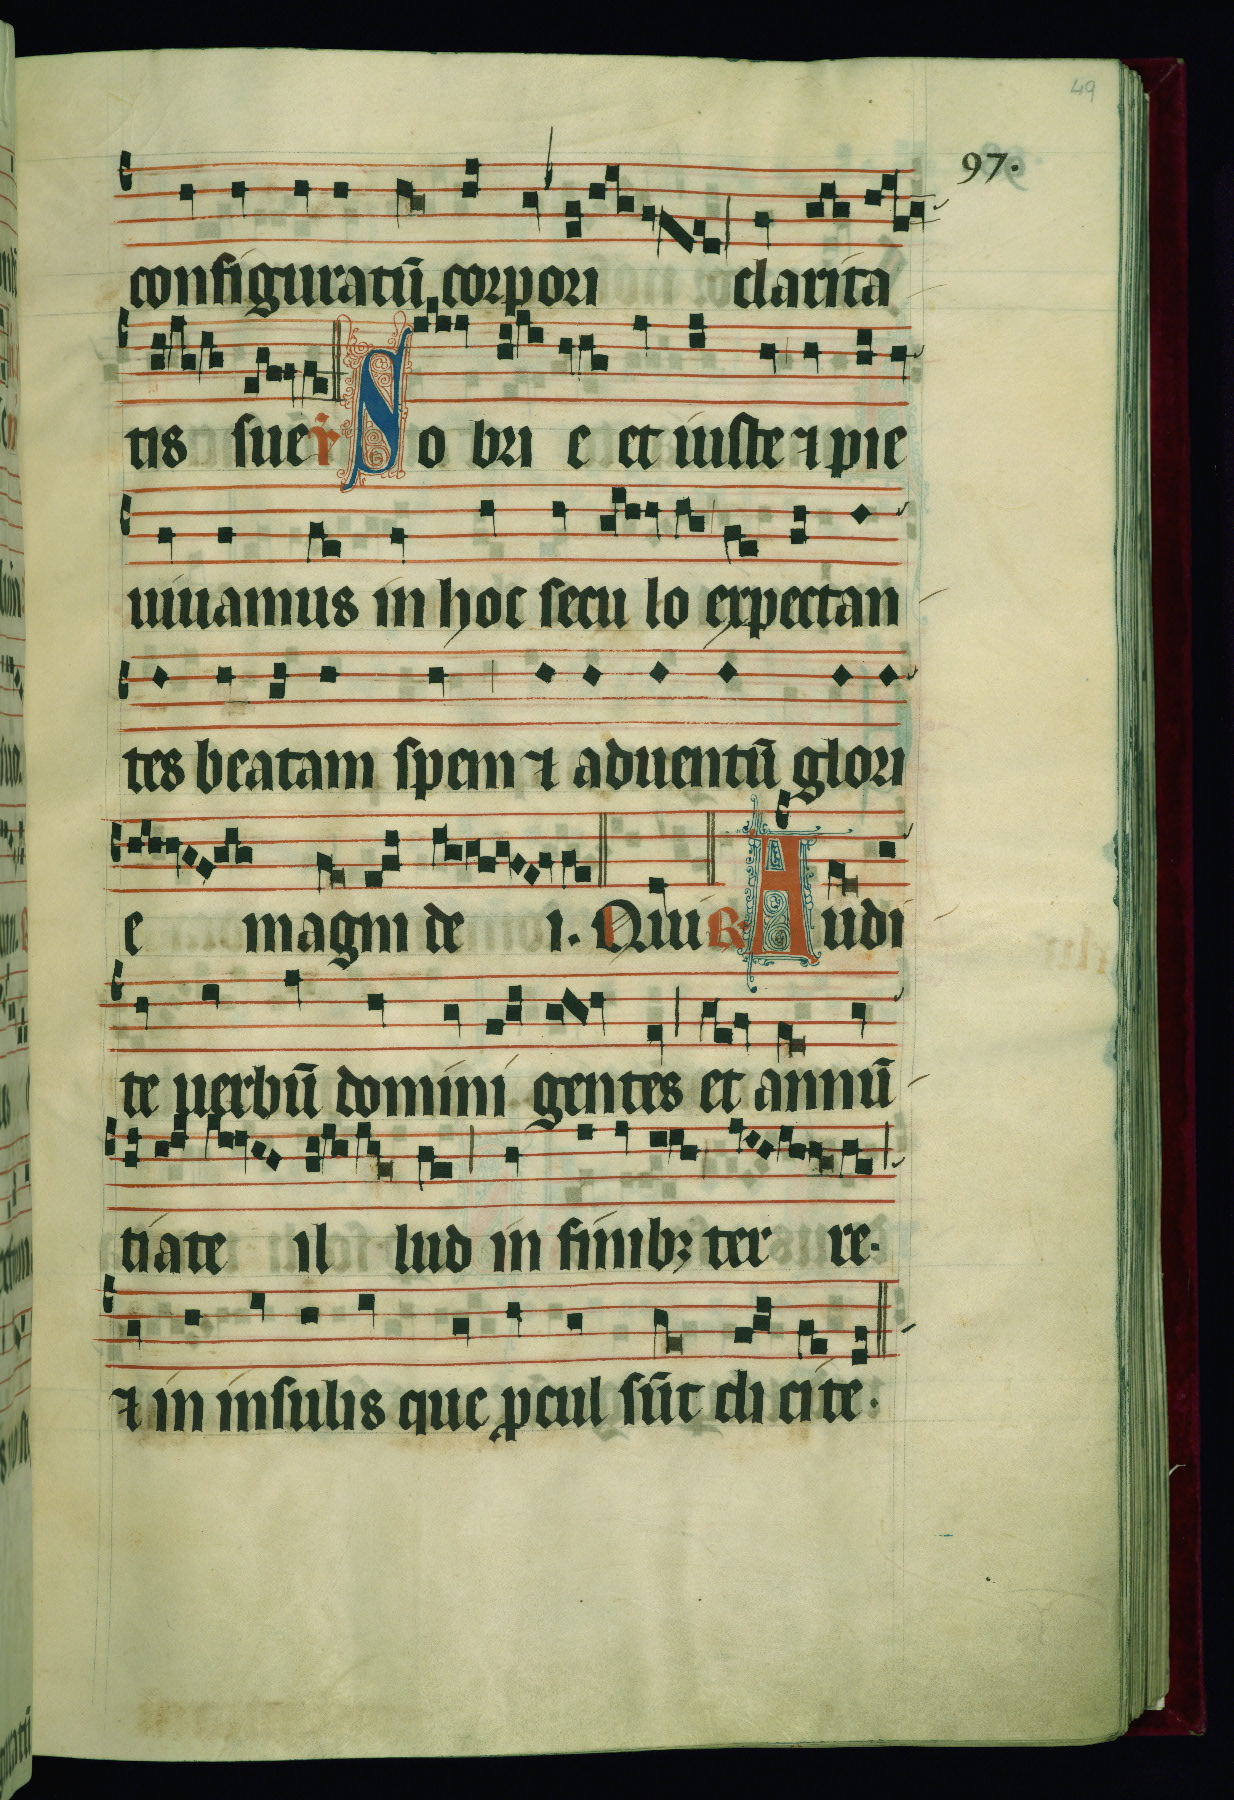 49
97.
configuratū corpori clarita
tis sue ℣ So bri e et iuste ⁊ pie
uiuamus in hoc secu lo expectan
tes beatam spem ⁊ aduentū glori
e magni de i. Qui ℟ Audi
te uerbū domini gentes et annū
tiate il lud in finibꝫ ter re.
⁊ in insulis que ꝓcul sūt di cite.